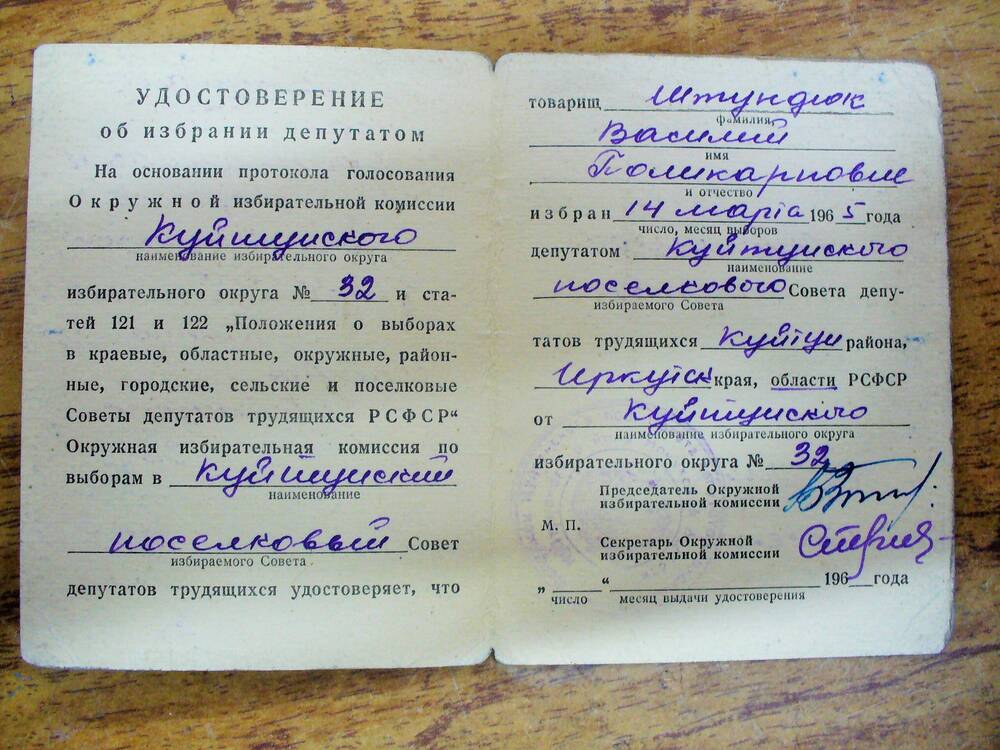 УДОСТОВЕРЕНИЕ
об избрании депутатом
На основании протокола голосования
Окружной избирательной комиссии
Куйтунского
наименование избирательного округа
избирательного округа № 32 и ста-
тей 121 и 122 „Положения о выборах
в краевые, областные, окружные, район-
ные, городские, сельские и поселковые
Советы депутатов трудящихся РСФСР“
Окружная избирательная комиссия по
выборам в Куйтунский
наименование
поселковый Совет
избираемого Совета
депутатов трудящихся удостоверяет, что
товарищ Штундюк
фамилия,
Василий
имя
Поликарпович
и отчество
избран 14 марта 1965 года
число, месяц выборов
депутатом Куйтунского
наименование
поселкового Совета депу-
избираемого Совета
татов трудящихся Куйтун района,
Иркутск края, области РСФСР
от Куйтунского
наименование избирательного округа
избирательного округа № 32
Председатель Окружной
избирательной комиссии
М. П.
Секретарь Окружной
избирательной комиссии
„ “ 196 года
число месяц выдачи удостоверения